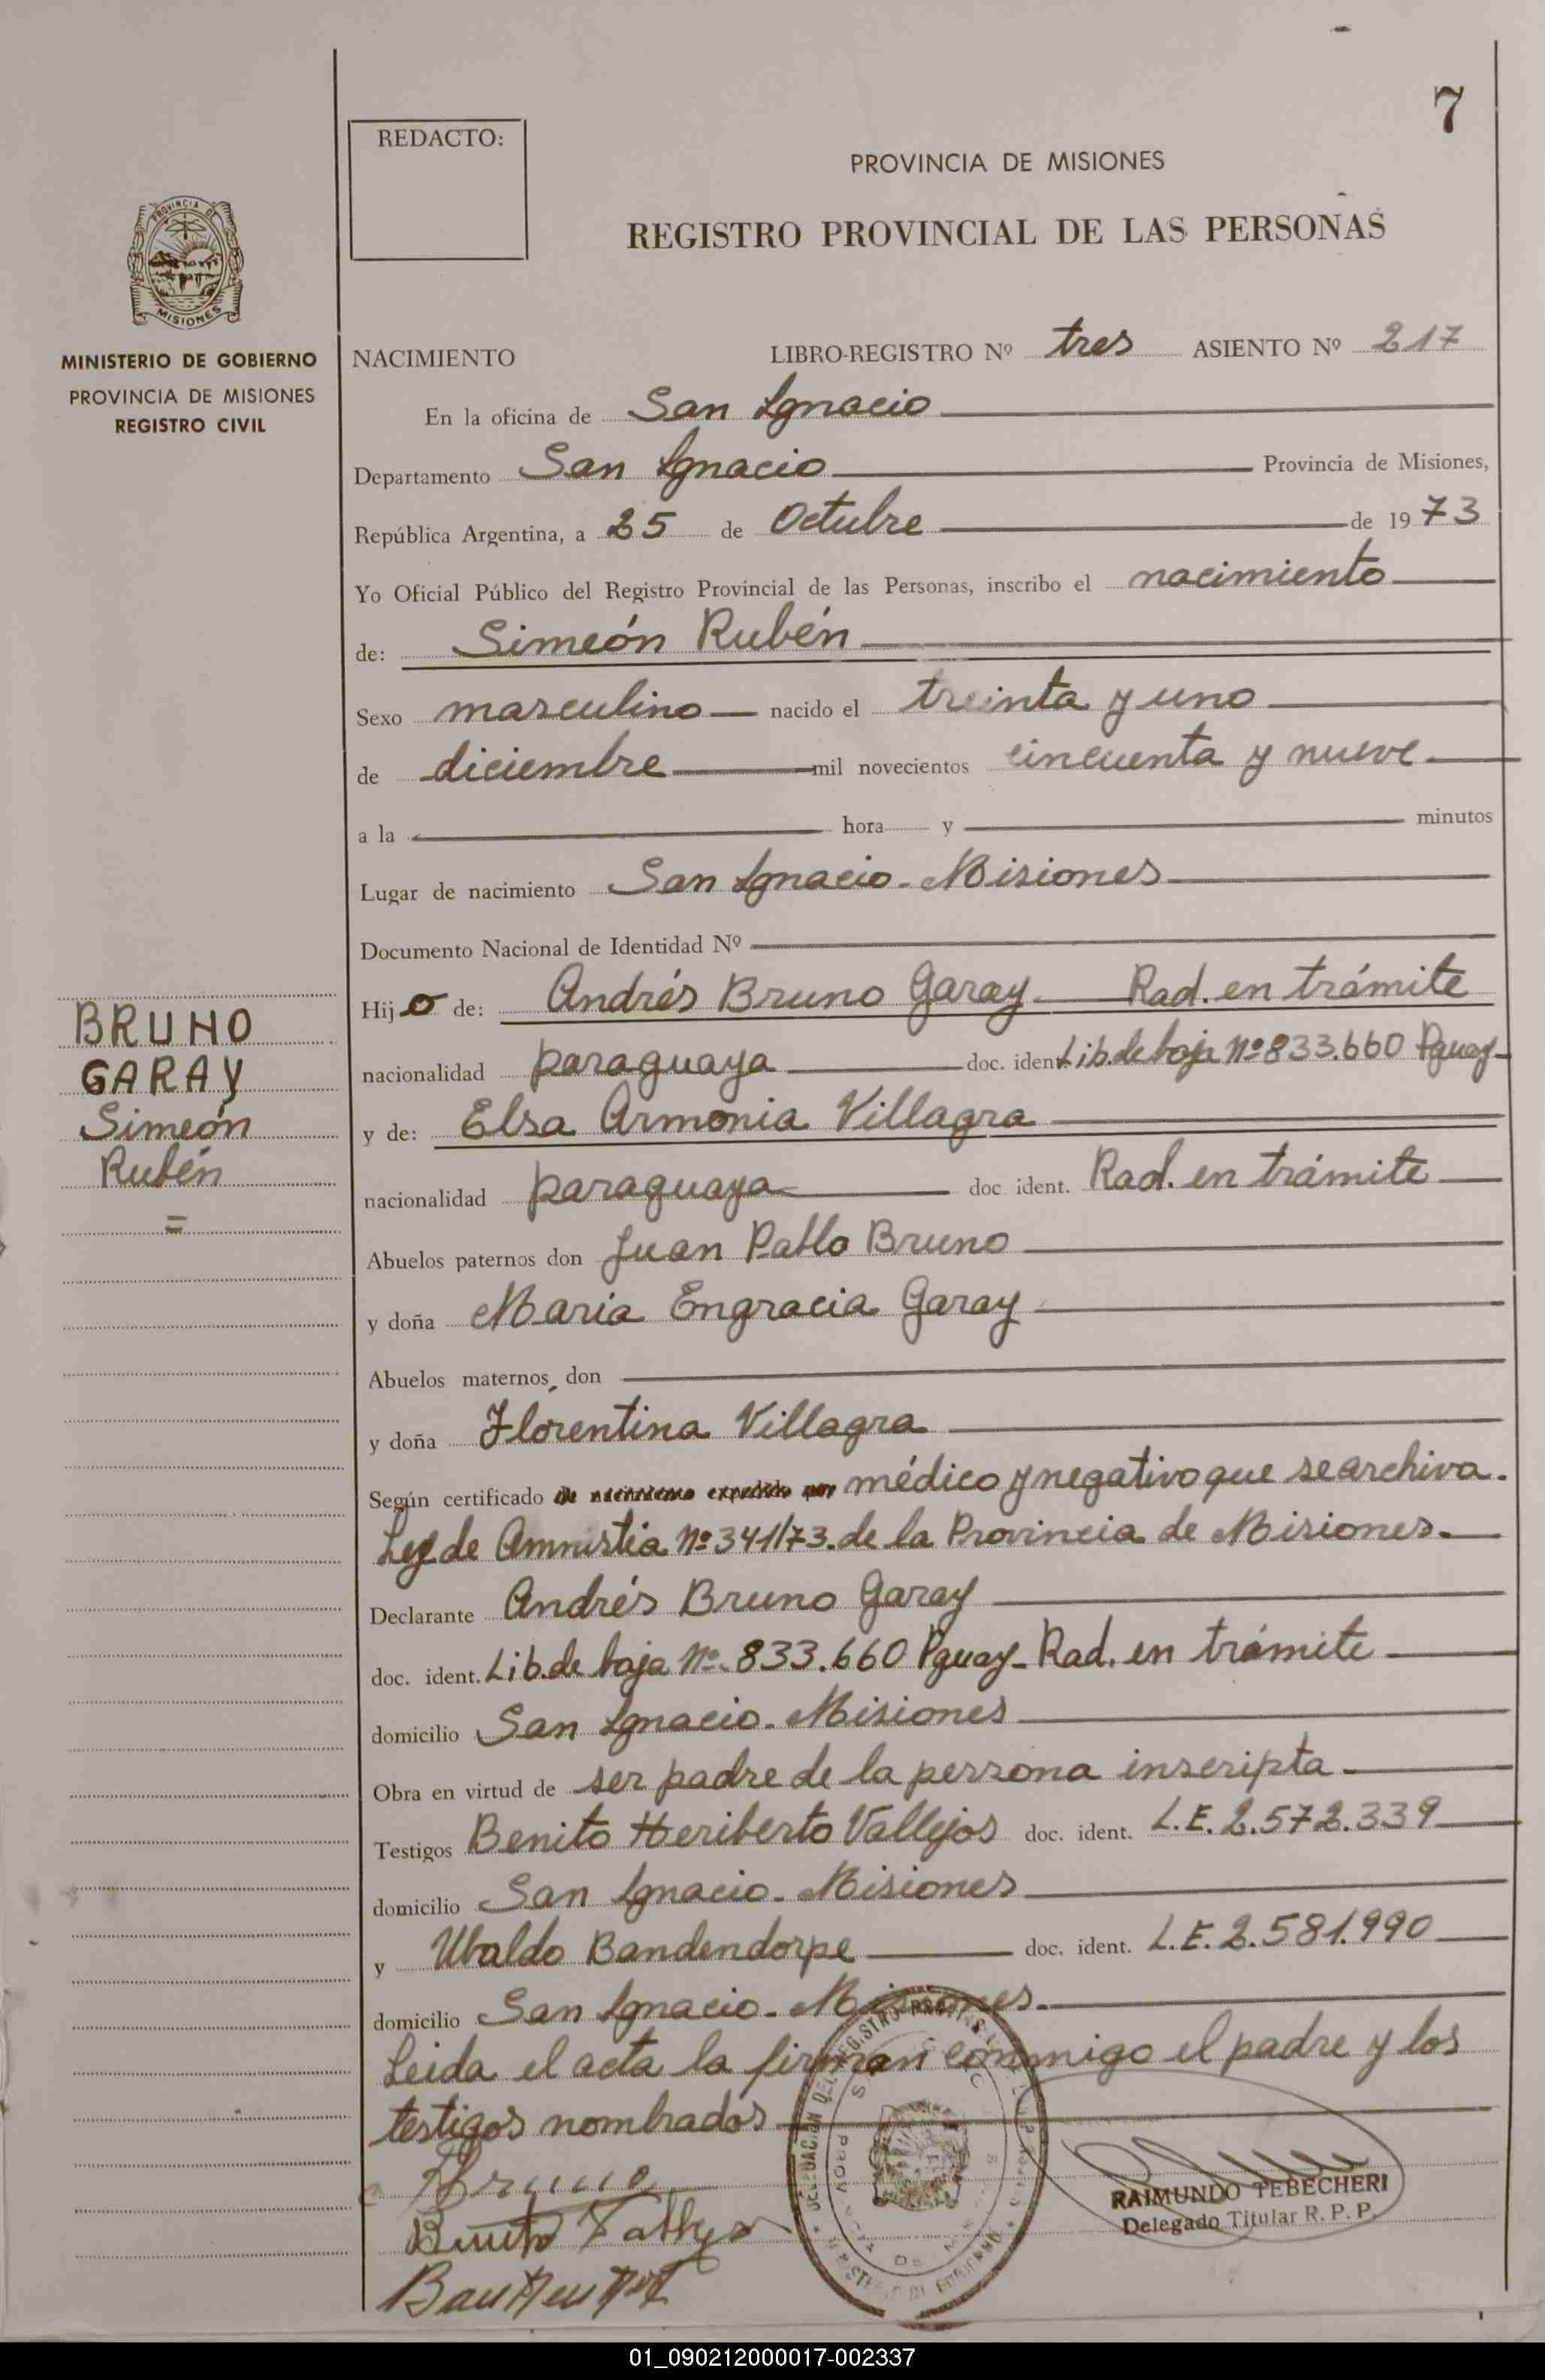 7
REDACTO:
PROVINCIA DE MISIONES
REGISTRO PROVINCIAL DE LAS PERSONAS
PROVINCIA DE
MISIONES
MINISTERIO DE GOBIERNO
PROVINCIA DE MISIONES
REGISTRO CIVIL
NACIMIENTO LIBRO-REGISTRO Nº tres ASIENTO Nº 217
En la oficina de San Ignacio
Departamento San Ignacio Provincia de Misiones,
República Argentina, a 25 de Octubre de 1973
Yo Oficial Público del Registro Provincial de las Personas, inscribo el nacimiento
de: Simeón Rubén
Sexo masculino nacido el treinta y uno
de diciembre mil novecientos cincuenta y nueve
a la hora y minutos
Lugar de nacimiento San Ignacio - Misiones
Documento Nacional de Identidad Nº
Hijo de: Andrés Bruno Garay - Rad. en trámite
nacionalidad paraguaya doc. ident. Lib. de baja Nº 833.660 Pguay-
y de: Elsa Armonia Villagra
nacionalidad paraguaya doc. ident. Rad. en trámite
BRUNO
GARAY
Simeón
Rubén
=
Abuelos paternos don Juan Pablo Bruno
y doña Maria Engracia Garay
Abuelos maternos, don
y doña Florentina Villagra
Según certificado de nacimiento expedido por médico y negativo que se archiva.
Ley de Amnistia Nº 341/73. de la Provincia de Misiones.
Declarante Andrés Bruno Garay
doc. ident. Lib. de baja Nº 833.660 Pguay- Rad. en trámite
domicilio San Ignacio - Misiones
Obra en virtud de ser padre de la persona inscripta.
Testigos Benito Heriberto Vallejos doc. ident. L.E. 2.572.339
domicilio San Ignacio - Misiones
y Ubaldo Bandendorpe doc. ident. L.E. 2.581.990
domicilio San Ignacio - Misiones.
Leida el acta la firman conmigo el padre y los
testigos nombrados
Bruno
Benito Vallejos
RAIMUNDO TEBECHERI
Delegado Titular R. P. P.
01_090212000017-002337